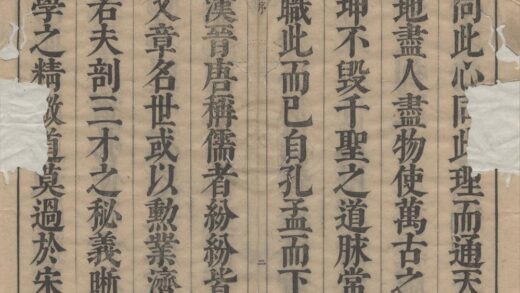 同此心同此理而通天
地盡人盡物使萬古之
坤不毀千聖之道脉常
職此而已自孔孟而下
序
二
漢晉唐稱儒者紛紛皆
文章名世或以勲業濟
若夫剖三才之秘義晰
學之精微道莫過於宋